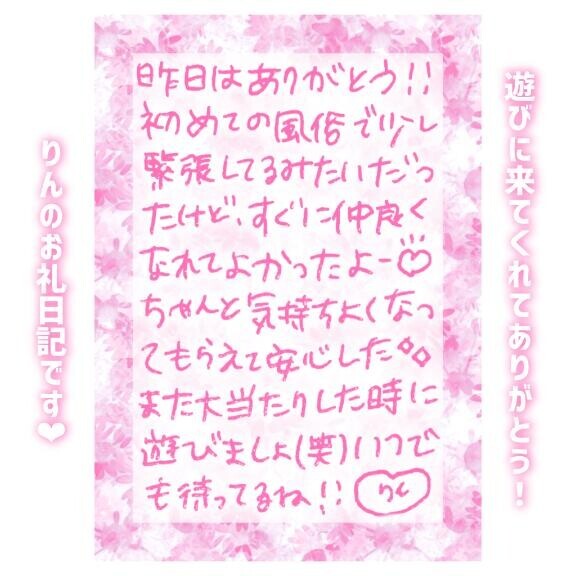 遊びに来てくれてありがとう！
昨日はありがとう!!
初めての風俗で少し
緊張してるみたいだっ
たけど、すぐに仲良く
なれてよかったよー♡
ちゃんと気持ちよくなっ
てもらえて安心した
また大当たりした時に
遊びましょ(笑)いつで
も待ってるね!!
りん
りんのお礼日記です❤